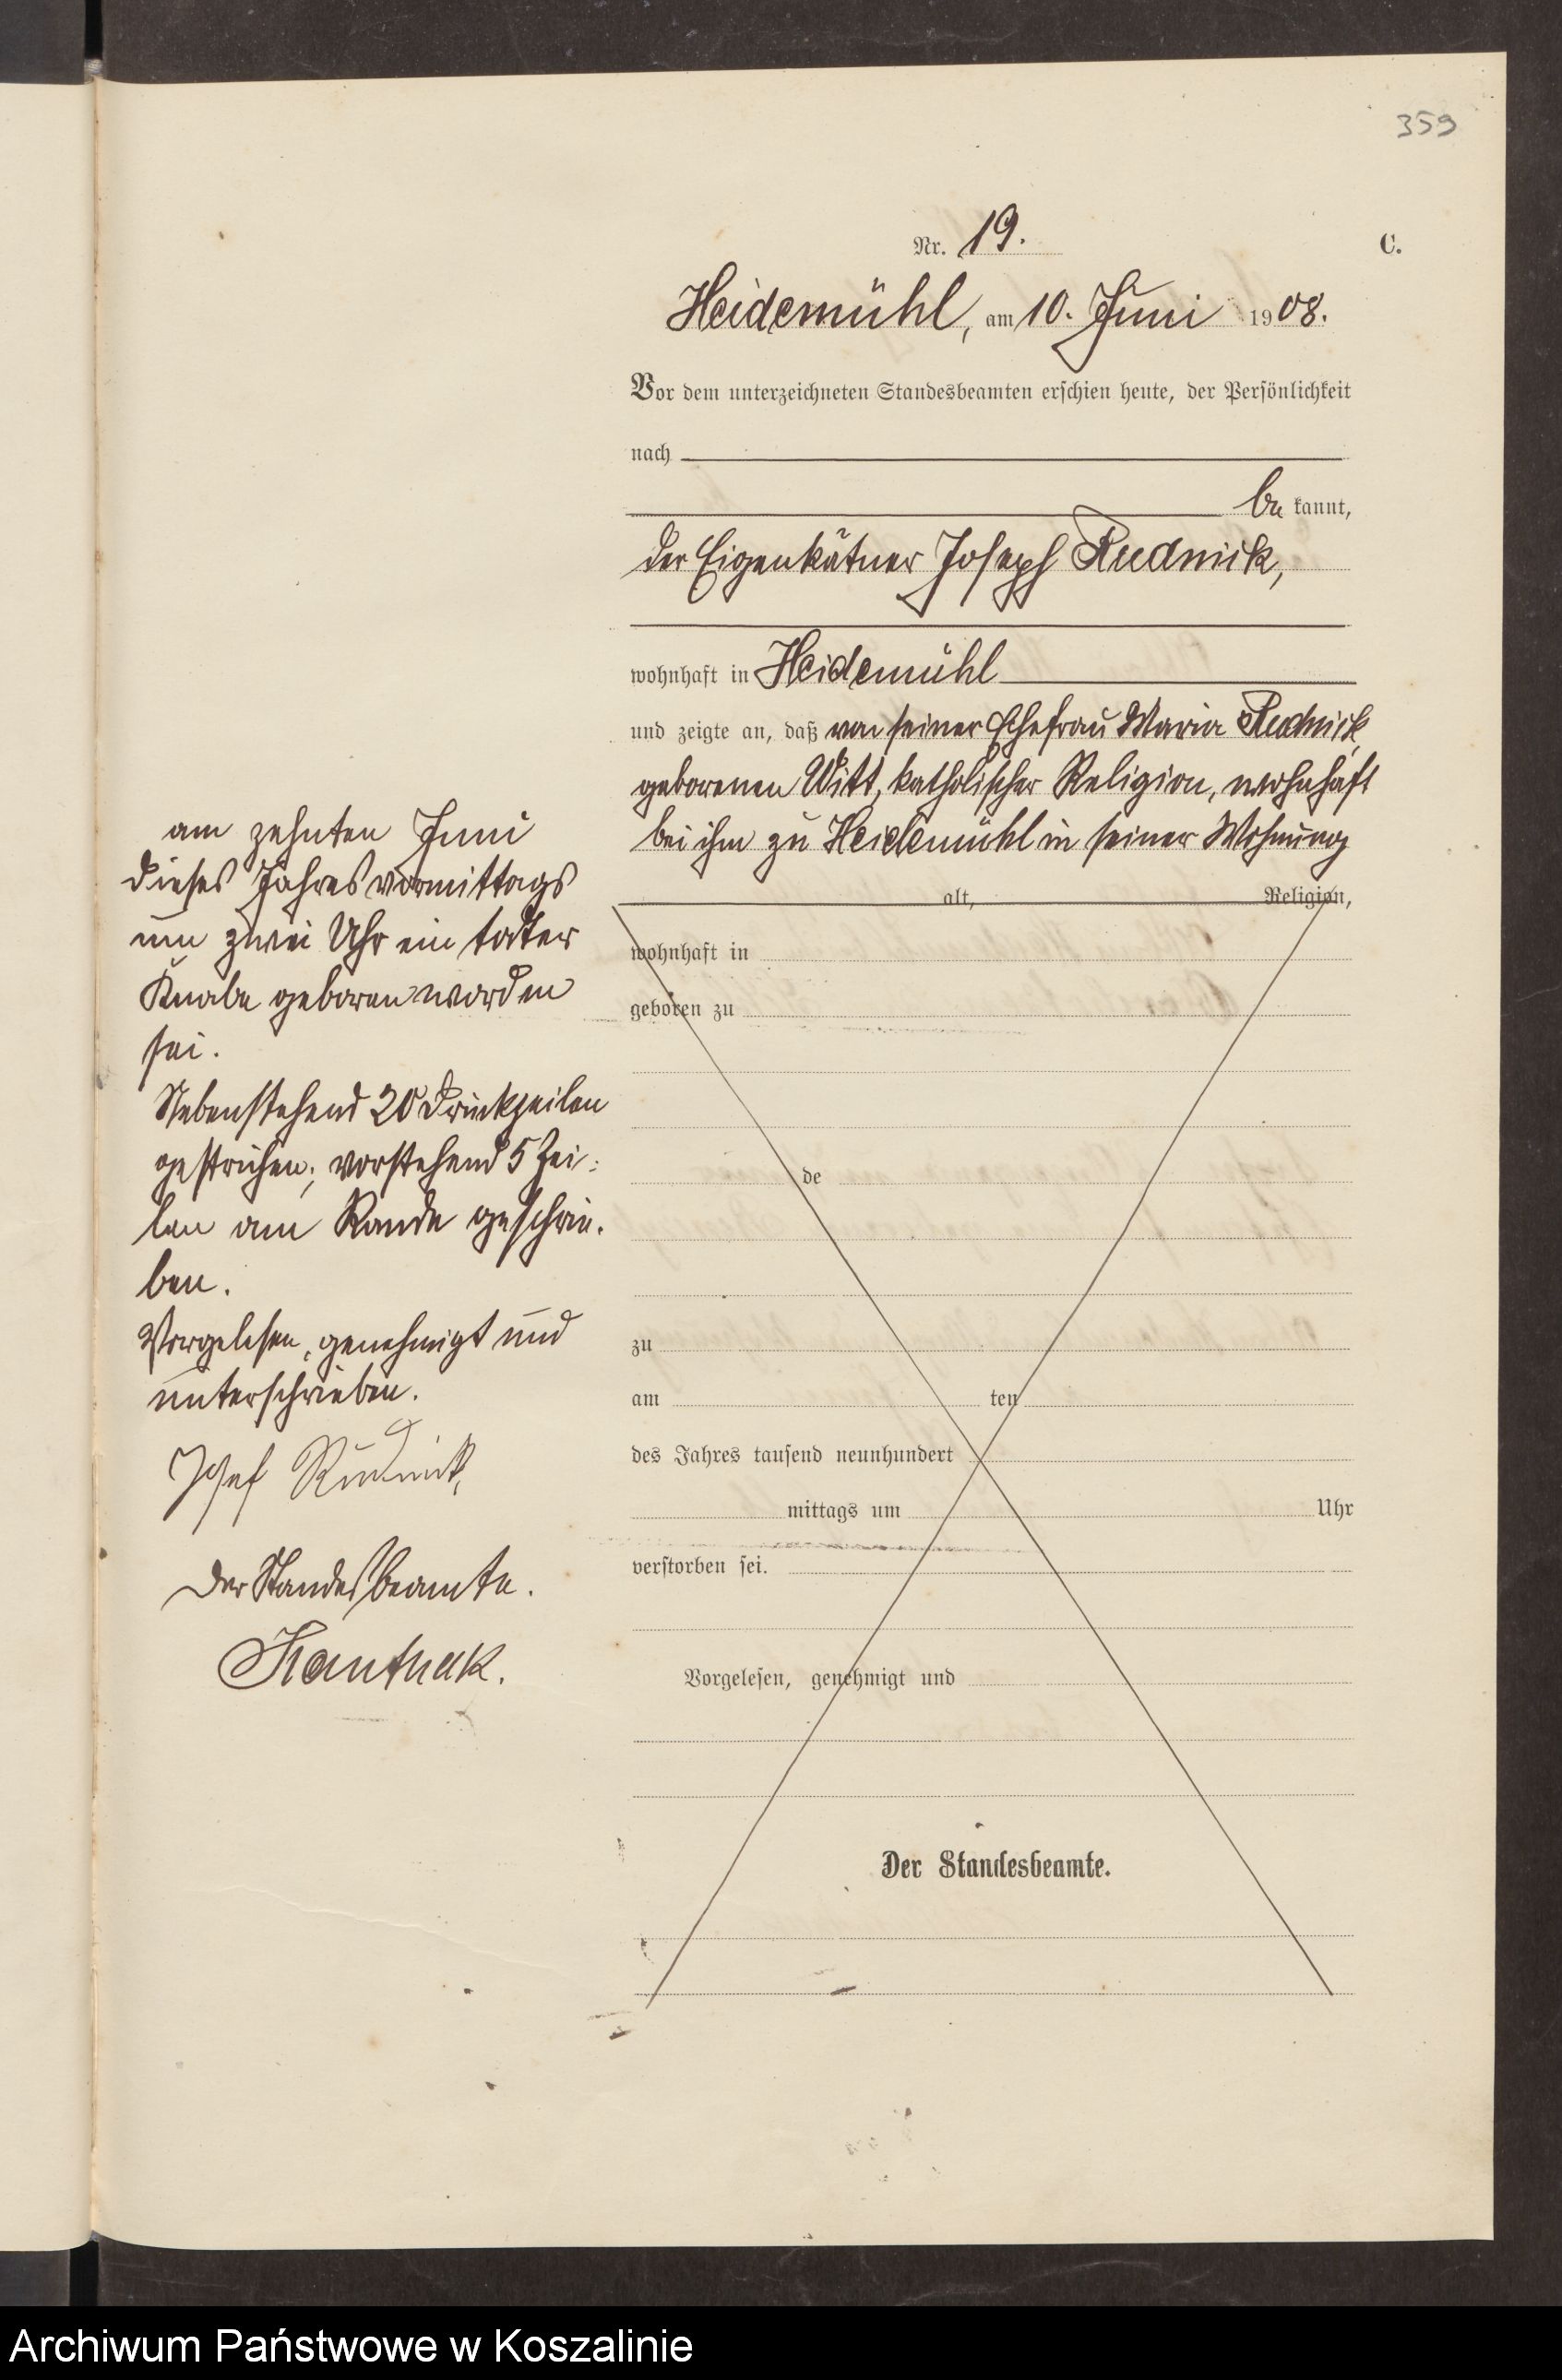 359
Nr. 19.
C.
Heidemühl, am 10. Juni 1908.
Vor dem unterzeichneten Standesbeamten erschien heute, der Persönlichkeit
nach
be kannt,
der Eigenkätner Joseph Rudnick,
wohnhaft in Heidemühl
und zeigte an, daß von seiner Ehefrau Maria Rudnick
geborenen Witt, katholischer Religion, wohnhaft
bei ihm zu Heidemühl in seiner Wohnung
alt, Religion,
wohnhaft in
geboren zu
de
zu
am ten
des Jahres tausend neunhundert
mittags um Uhr
verstorben sei.
Vorgelesen, genehmigt und
Der Standesbeamte.
am zehnten Juni
dieses Jahres vormittags
um zwei Uhr ein toter
Knabe geboren worden
sei.
Nebenstehend 20 Druckzeilen
gestrichen; vorstehend 5 Zei-
len am Rande geschrie-
ben.
Vorgelesen, genehmigt und
unterschrieben.
Josef Rudnick,
Der Standesbeamte.
Kanthak.
Archiwum Państwowe w Koszalinie